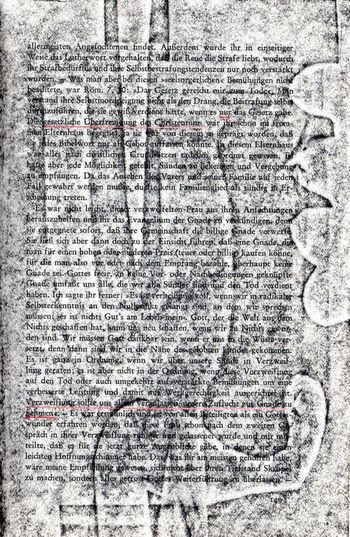 allerorgsten Angefochtenen findet. Außerdem wurde ihr in einseitiger
Weise das Lutherwort vorgehalten, daß die Reue die Strafe liebt, wodurch
ihr Strafbedürfnis und ihre Selbstbestrafungstendenzen nur noch verstärkt
wurden. – Was man aber bei diesen »seelsorgerlichen« Bemühungen nicht
beachtete, war Röm. 7, 10: »Das Gesetz gereicht mir zum Tode«. Man
verstand ihre Selbstmordneigung nicht als den Drang, die Bestrafung selbst
die sie gewiß verdient hätte, wenn es nur das Gesetz gäbe.
Die gesetzliche Übertreibung des Christentums war ihr schon im
Elternhaus begegnet; da sie von diesem so geprägt worden, daß
sie jedes Bibelwort nur als Gebot auffassen konnte. In diesem Elternhaus
war alles nach christlichen Grundsätzen tadellos geordnet gewesen. Es
hatte aber jede Möglichkeit gefehlt, Sünden zu bekennen und Vergebung
zu empfangen. Da das Ansehen des Vaters und seiner Familie auf jeden
Fall gewahrt werden mußte, durfte kein Familienglied als sündig in Er-
scheinung treten.
Es war nicht leicht, diese verzweifelten Frau aus ihren Anfechtungen
herauszuhelfen und ihr das Evangelium der Gnade zu verkündigen; denn
sie entgegnete sofort, daß ihre Gemeinschaft die billige Gnade verwerfe.
Sie ließ sich aber dann doch zu der Einsicht führen, daß eine Gnade, die
man für einen hohen oder niederen Preis (teuer oder billig) kaufen könne,
für die man also vor oder nach dem Empfang bezahlt, überhaupt keine
Gnade sei. Gottes freie, an keine Vor- oder Nachbedingungen geknüpfte
Gnade umfaßt uns alle, die wir alle Sünder sind und den Tod verdient
haben. Ich sagte ihr ferner: »Es ist verheißungsvoll, wenn wir in radikaler
Selbsterkenntnis an den Nullpunkt gelangt sind, an dem wir sprechen
müssen: ›es ist nichts Gut's am Leben mein‹. Gott, der die Welt aus dem
Nichts geschaffen hat, kann uns neu schaffen, wenn wir zu Nichts gewor-
den sind. Wir müssen Gott dankbar sein, wenn er uns in die Wüste ver-
setzt, denn dann sind wir in die Nähe des gelobten Landes gekommen.
Es ist ganz in Ordnung, wenn wir über unsere Sünde in Verzweif-
lung geraten; es ist aber nicht in der Ordnung, wenn diese Verzweiflung
auf den Tod oder auch umgekehrt auf verstärkte Bemühungen um eine
verbesserte Leistung und damit auf Werkgerechtigkeit ausgerichtet ist.
Verzweiflung sollte uns allein veranlassen, unsere Zuflucht zur Gnade zu
nehmen.« – Es war erstaunlich und ist von allen Beteiligten als ein Gottes-
wunder erfahren worden, daß die Frau schon nach dem zweiten Ge-
spräch in ihrer Verzweiflung ruhiger und gelassener wurde und mir mit-
teilte, daß es für sie jetzt kurze Augenblicke gäbe, in denen sie einen
leichten Hoffnungsschimmer habe. Das, was ihr am meisten geholfen habe,
wäre meine Empfehlung gewesen, sich nicht über ihren Tiefstand Skrupel
zu machen, sondern alles getrost Gottes Weiterführung zu überlassen.